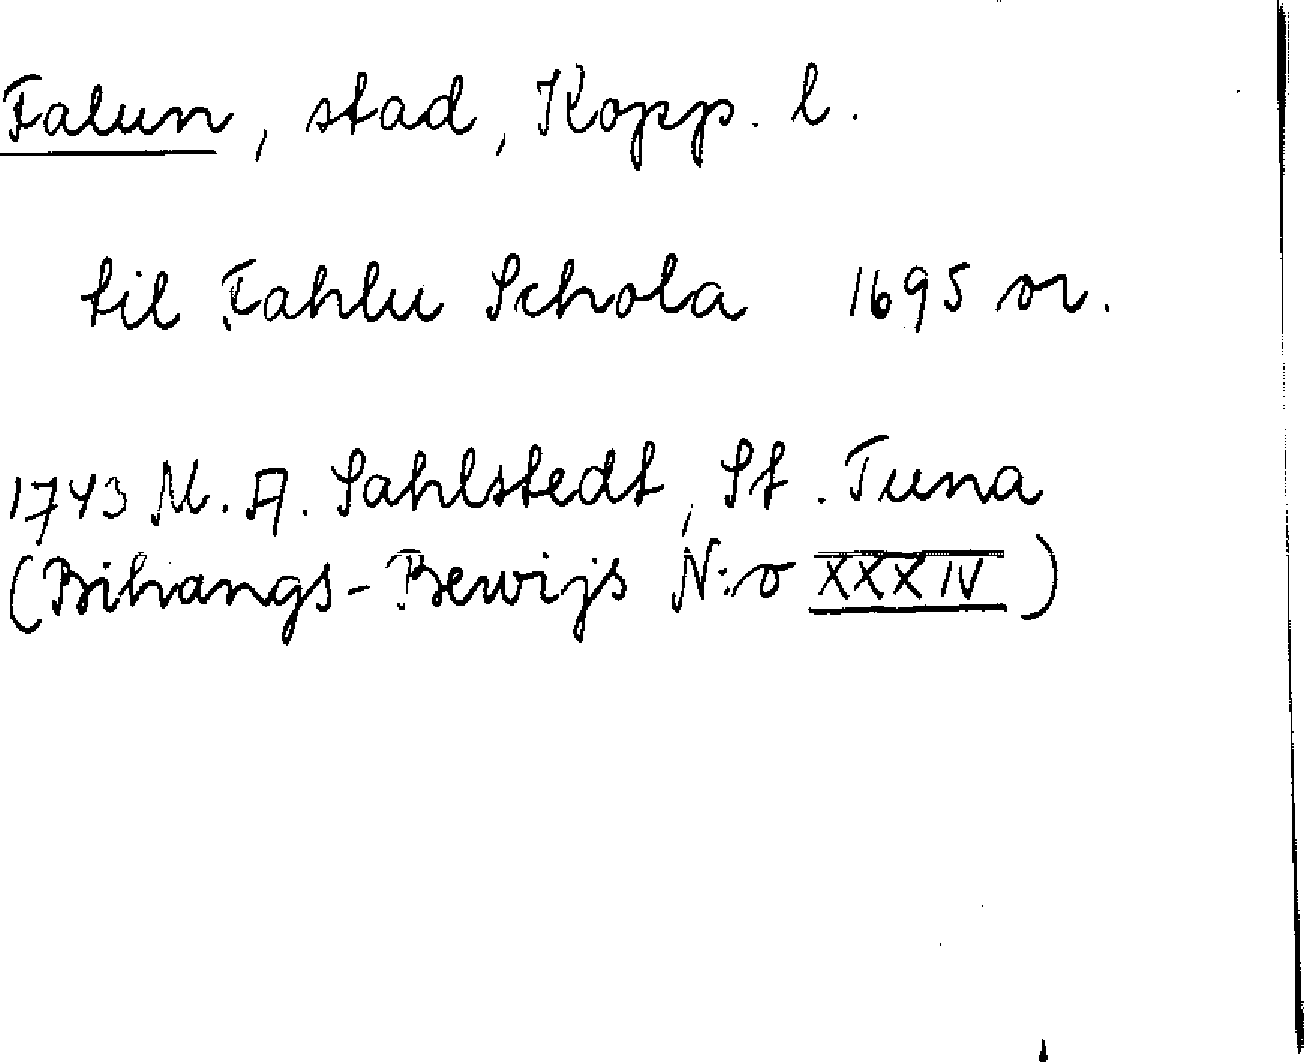 Falun, stad, Kopp. l.
til Fahlu Schola 1695 or.
1743 M. A. Sahlstedt, St. Tuna
(Bihangs-Bewijs N:o XXXIV)